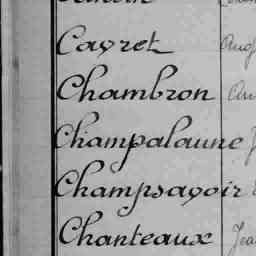 Cayret Aug
Chambron
Champalaune J
Champsavoir
Chanteaux Jea